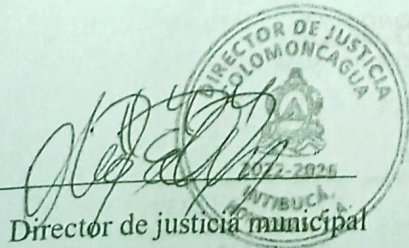 DIRECTOR DE JUSTICIA
COLOMONCAGUA
2022-2026
INTIBUCÁ,
Director de justicia municipal